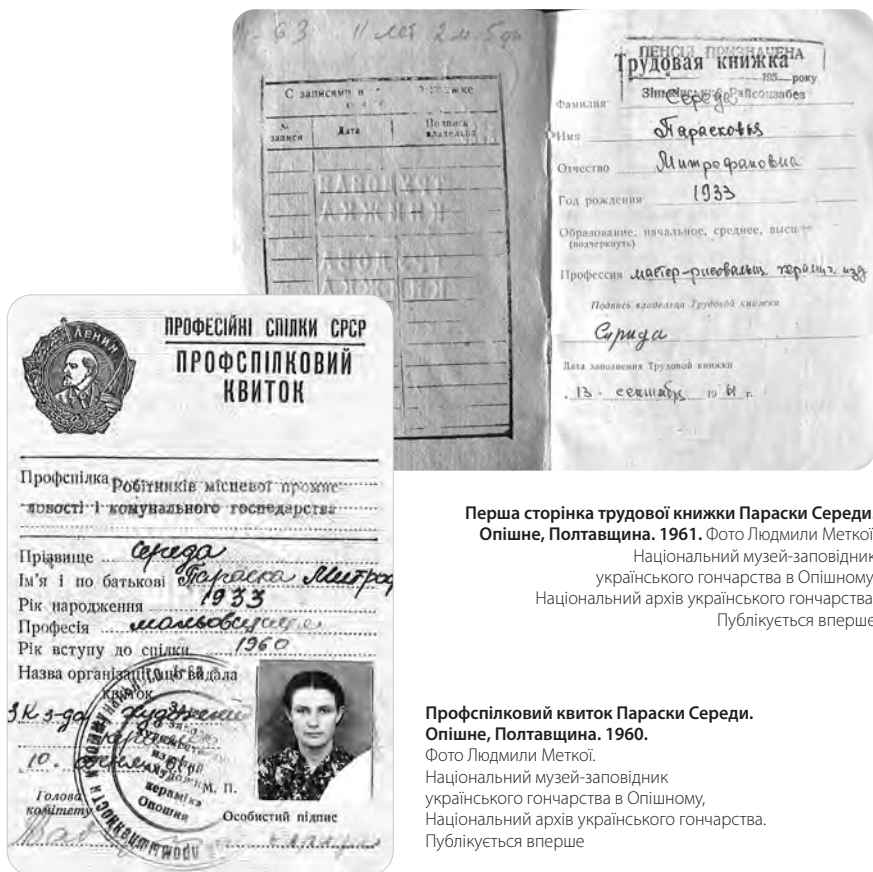 11 лет 2 м. 5 дн
С записями в
№ записи
Дата
Подпись владельца
ПЕНСІЯ ПРИЗНАЧЕНА
Трудовая книжка
195 року
Райсоцзабез
Фамилия Середа
Имя Парасковья
Отчество Митрофановна
Год рождения 1933
Образование: начальное, среднее, высш
(подчеркнуть)
Профессия мастер-рисовальщ. керамич. изд
Подпись владельца Трудовой книжки
Дата заполнения Трудовой книжки
13 сентября 1961 г.
ПРОФЕСІЙНІ СПІЛКИ СРСР
ПРОФСПІЛКОВИЙ
КВИТОК
ЛЕНИН
Профспілка Робітників місцевої промис-
ловості і комунального господарства
Прізвище Середа
Ім'я і по батькові Параска Митроф
Рік народження 1933
Професія
Рік вступу до спілки 1960
Назва організації, що видала
квиток
10.
М. П.
Голова
комітету
Особистий підпис
кераміка
Опошня
Перша сторінка трудової книжки Параски Середи.
Опішне, Полтавщина. 1961. Фото Людмили Меткої
Національний музей-заповідник
українського гончарства в Опішному
Національний архів українського гончарства
Публікується вперше
Профспілковий квиток Параски Середи.
Опішне, Полтавщина. 1960.
Фото Людмили Меткої.
Національний музей-заповідник
українського гончарства в Опішному,
Національний архів українського гончарства.
Публікується вперше